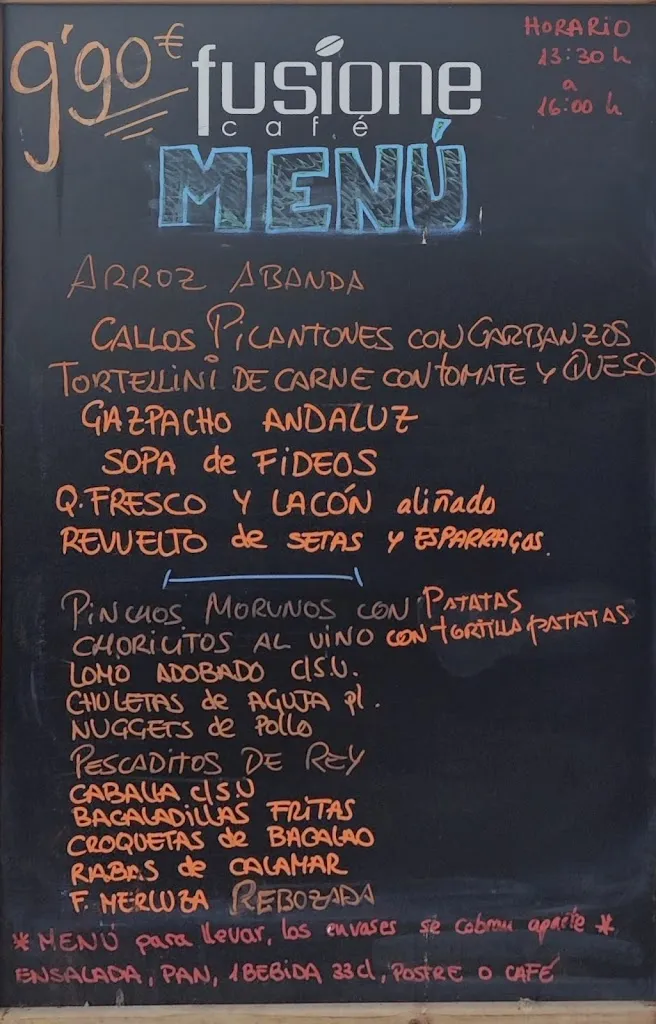 9'90€
fusione
café
HORARIO
13:30 h
a
16:00 h
MENÚ
ARROZ ABANDA
CALLOS PICANTONES CON GARBANZOS
TORTELLINI DE CARNE CON TOMATE Y QUESO
GAZPACHO ANDALUZ
SOPA de FIDEOS
Q. FRESCO Y LACÓN aliñado
REVUELTO de SETAS Y ESPARRAGOS.
PINCHOS MORUNOS CON PATATAS
CHORICITOS AL VINO CON TORTILLA PATATAS
LOMO ADOBADO C/S.U.
CHULETAS de AGUJA pl.
NUGGETS de Pollo
PESCADITOS DE REY
CABALLA C/S.U
BACALADILLAS FRITAS
CROQUETAS de BACALAO
RABAS de CALAMAR
F. MERLUZA REBOZADA
* MENÚ para llevar, los envases se cobran aparte *
ENSALADA, PAN, 1 BEBIDA 33 cl, POSTRE O CAFÉ